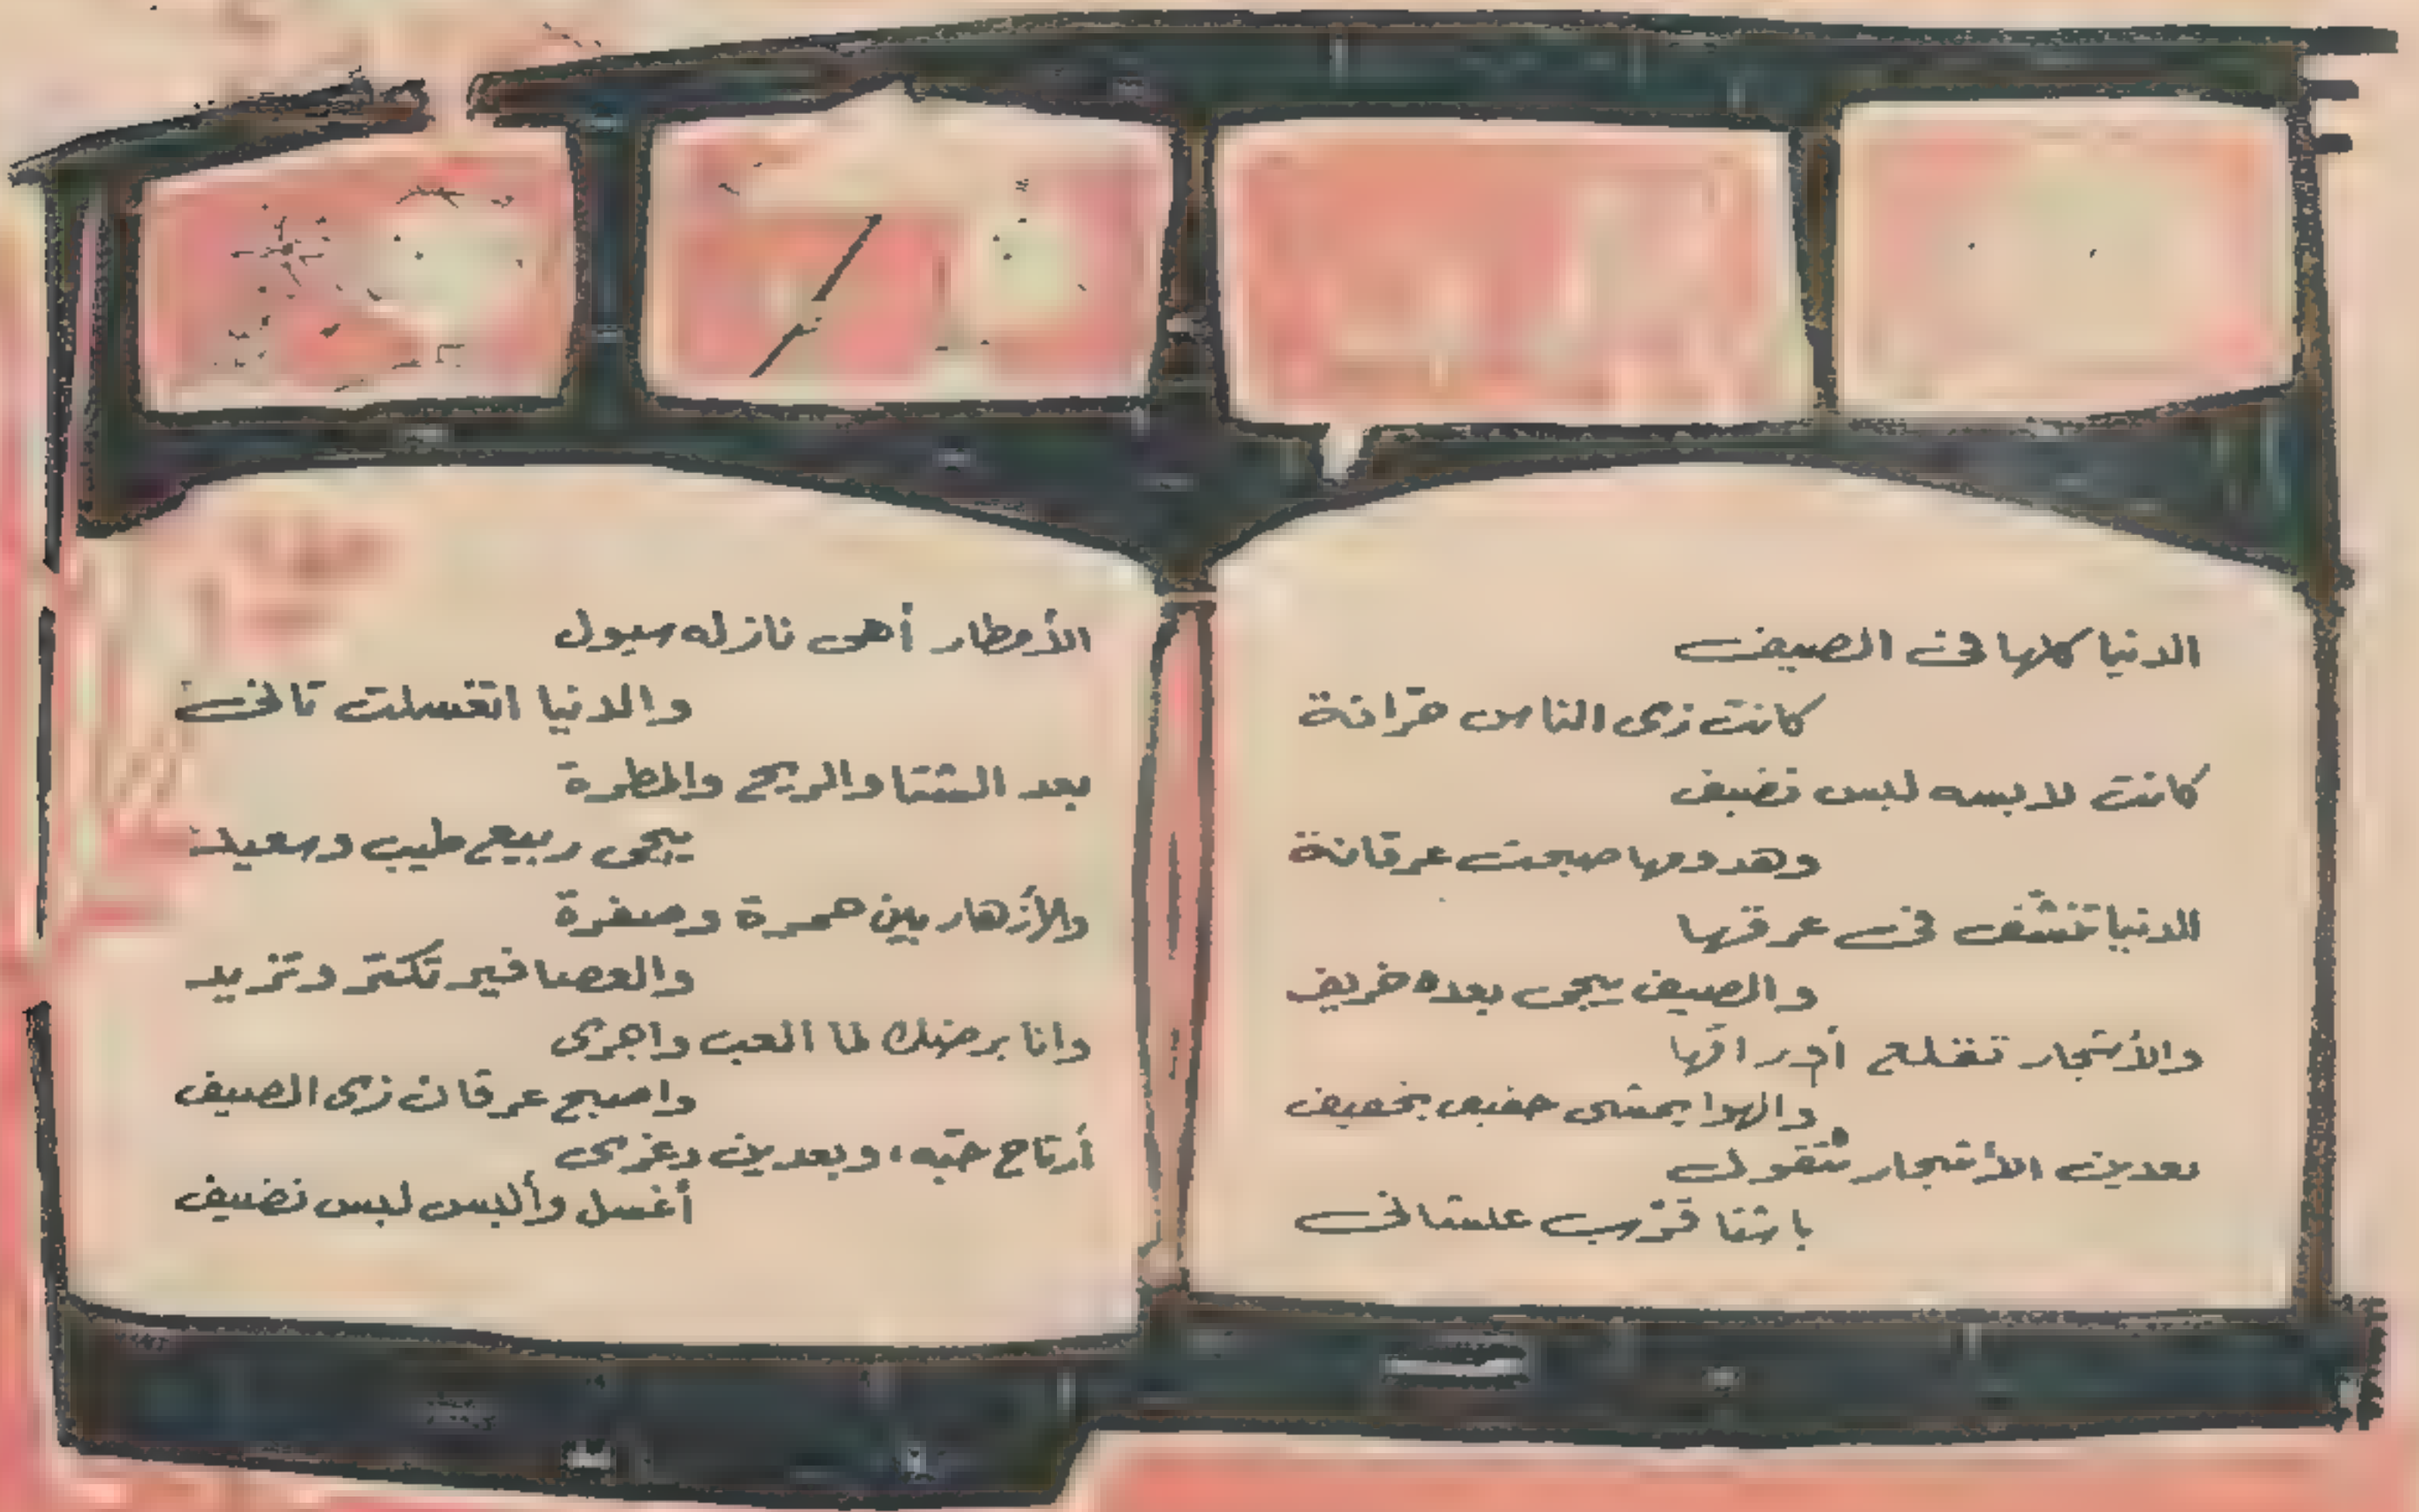 الدنيا كلها فى الصيف
كانت زى الناس حرّانة
كانت لابسه لبس نضيف
وهدومها صبحت عرقانة
الدنيا تنشّف فى عرقها
والصيف ييجى بعده خريف
والأشجار تقلع أوراقها
والهوا يمشى خفيف بخفيف
بعدين الأشجار تقول
يا شتا قرّب علشانى
الأمطار أهى نازله سيول
والدنيا اتغسلت تانى
بعد الشتا والريح والمطرة
ييجى ربيع طيب وسعيد
والأزهار بين حمرة وصفرة
والعصافير تكتر وتزيد
وانا برضك لما العب واجرى
واصبح عرقان زى الصيف
أرتاح حبّه، وبعدين دغرى
أغسل وألبس لبس نضيف